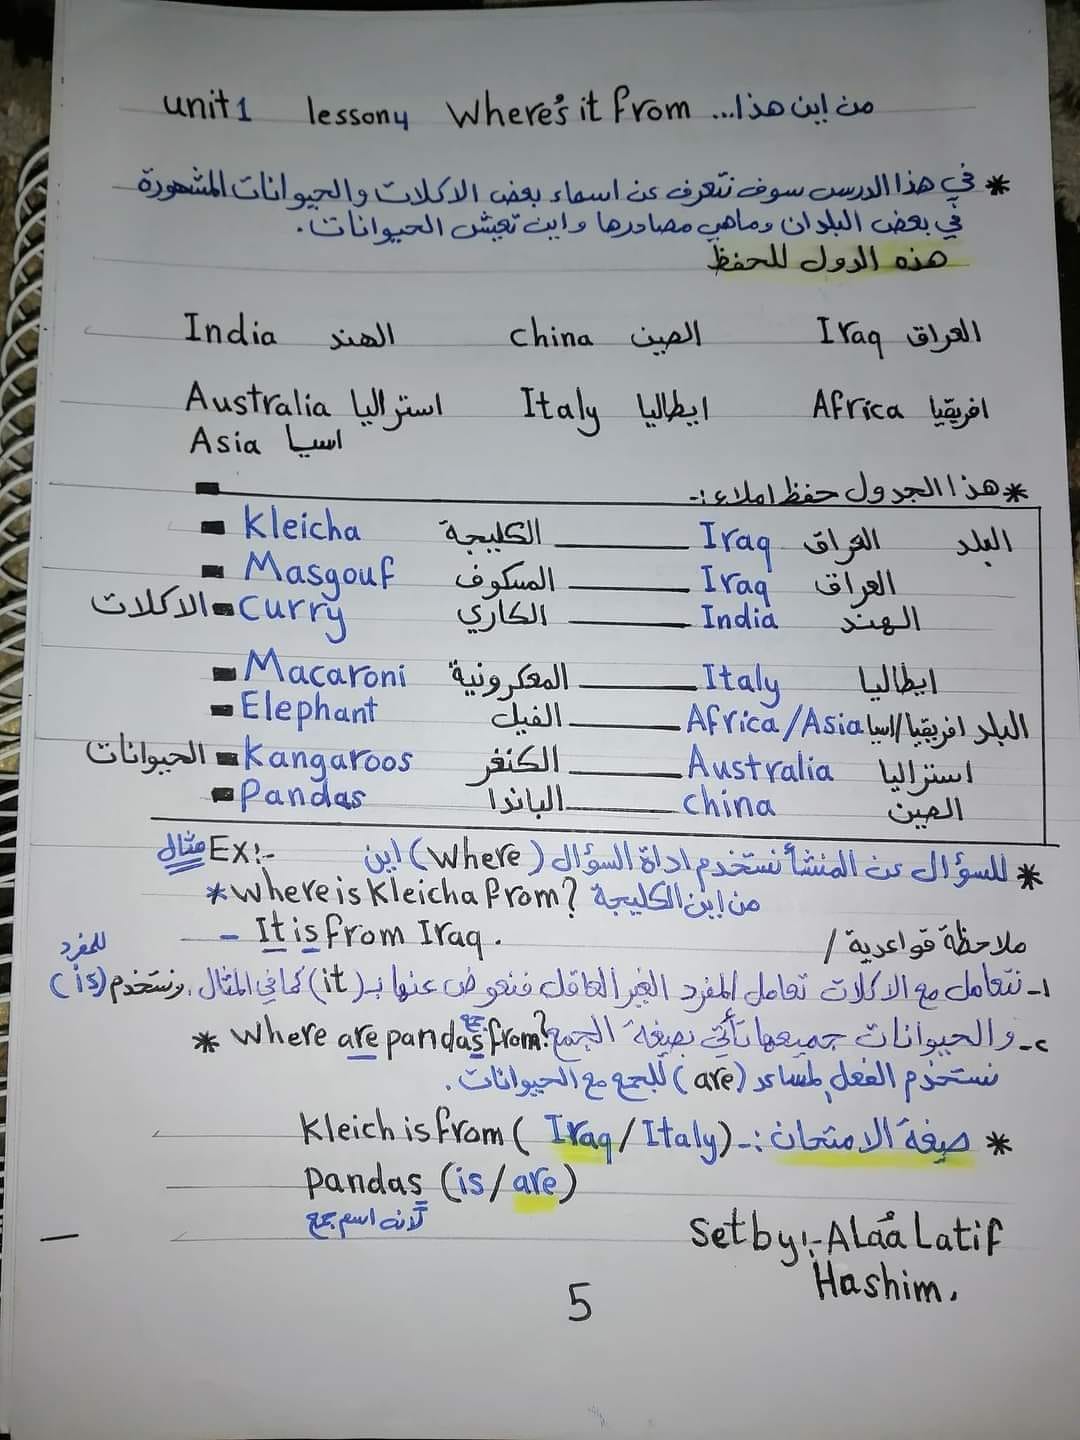 unit 1 lesson 4 Where's it from ... من اين هذا
* في هذا الدرس سوف نتعرف عن اسماء بعض الاكلات والحيوانات المشهورة
في بعض البلدان وماهي مصادرها واين تعيش الحيوانات.
هذه الدول للحفظ
Iraq العراق China الصين India الهند
Africa افريقيا Italy ايطاليا Australia استراليا
Asia اسيا
* هذا الجدول حفظ املاء :-
البلد العراق Iraq الكليجة Kleicha
العراق Iraq المسكوف Masgouf
الهند India الكاري Curry الاكلات
ايطاليا Italy المعكرونية Macaroni
البلد افريقيا/اسيا Africa/Asia الفيل Elephant
استراليا Australia الكنغر Kangaroos الحيوانات
الصين China الباندا Pandas
* للسؤال عن المنشأ نستخدم اداة السؤال (Where) اين Ex:- مثال
* Where is Kleicha from? من اين الكليجة
- It is from Iraq.
ملاحظة قواعدية /
للمفرد
1- نتعامل مع الاكلات تعامل المفرد الغير العاقل فنعوض عنها بـ (it) كما في المثال. ونستخدم (is)
2- والحيوانات جميعها تأتي بصيغة الجمع * Where are pandas from? جمع
نستخدم الفعل المساعد (are) للجمع مع الحيوانات.
* صيغة الامتحان :- Kleich is from ( Iraq / Italy )
Pandas (is / are)
لانه اسم جمع
Set by:- Alaa Latif
Hashim.
5